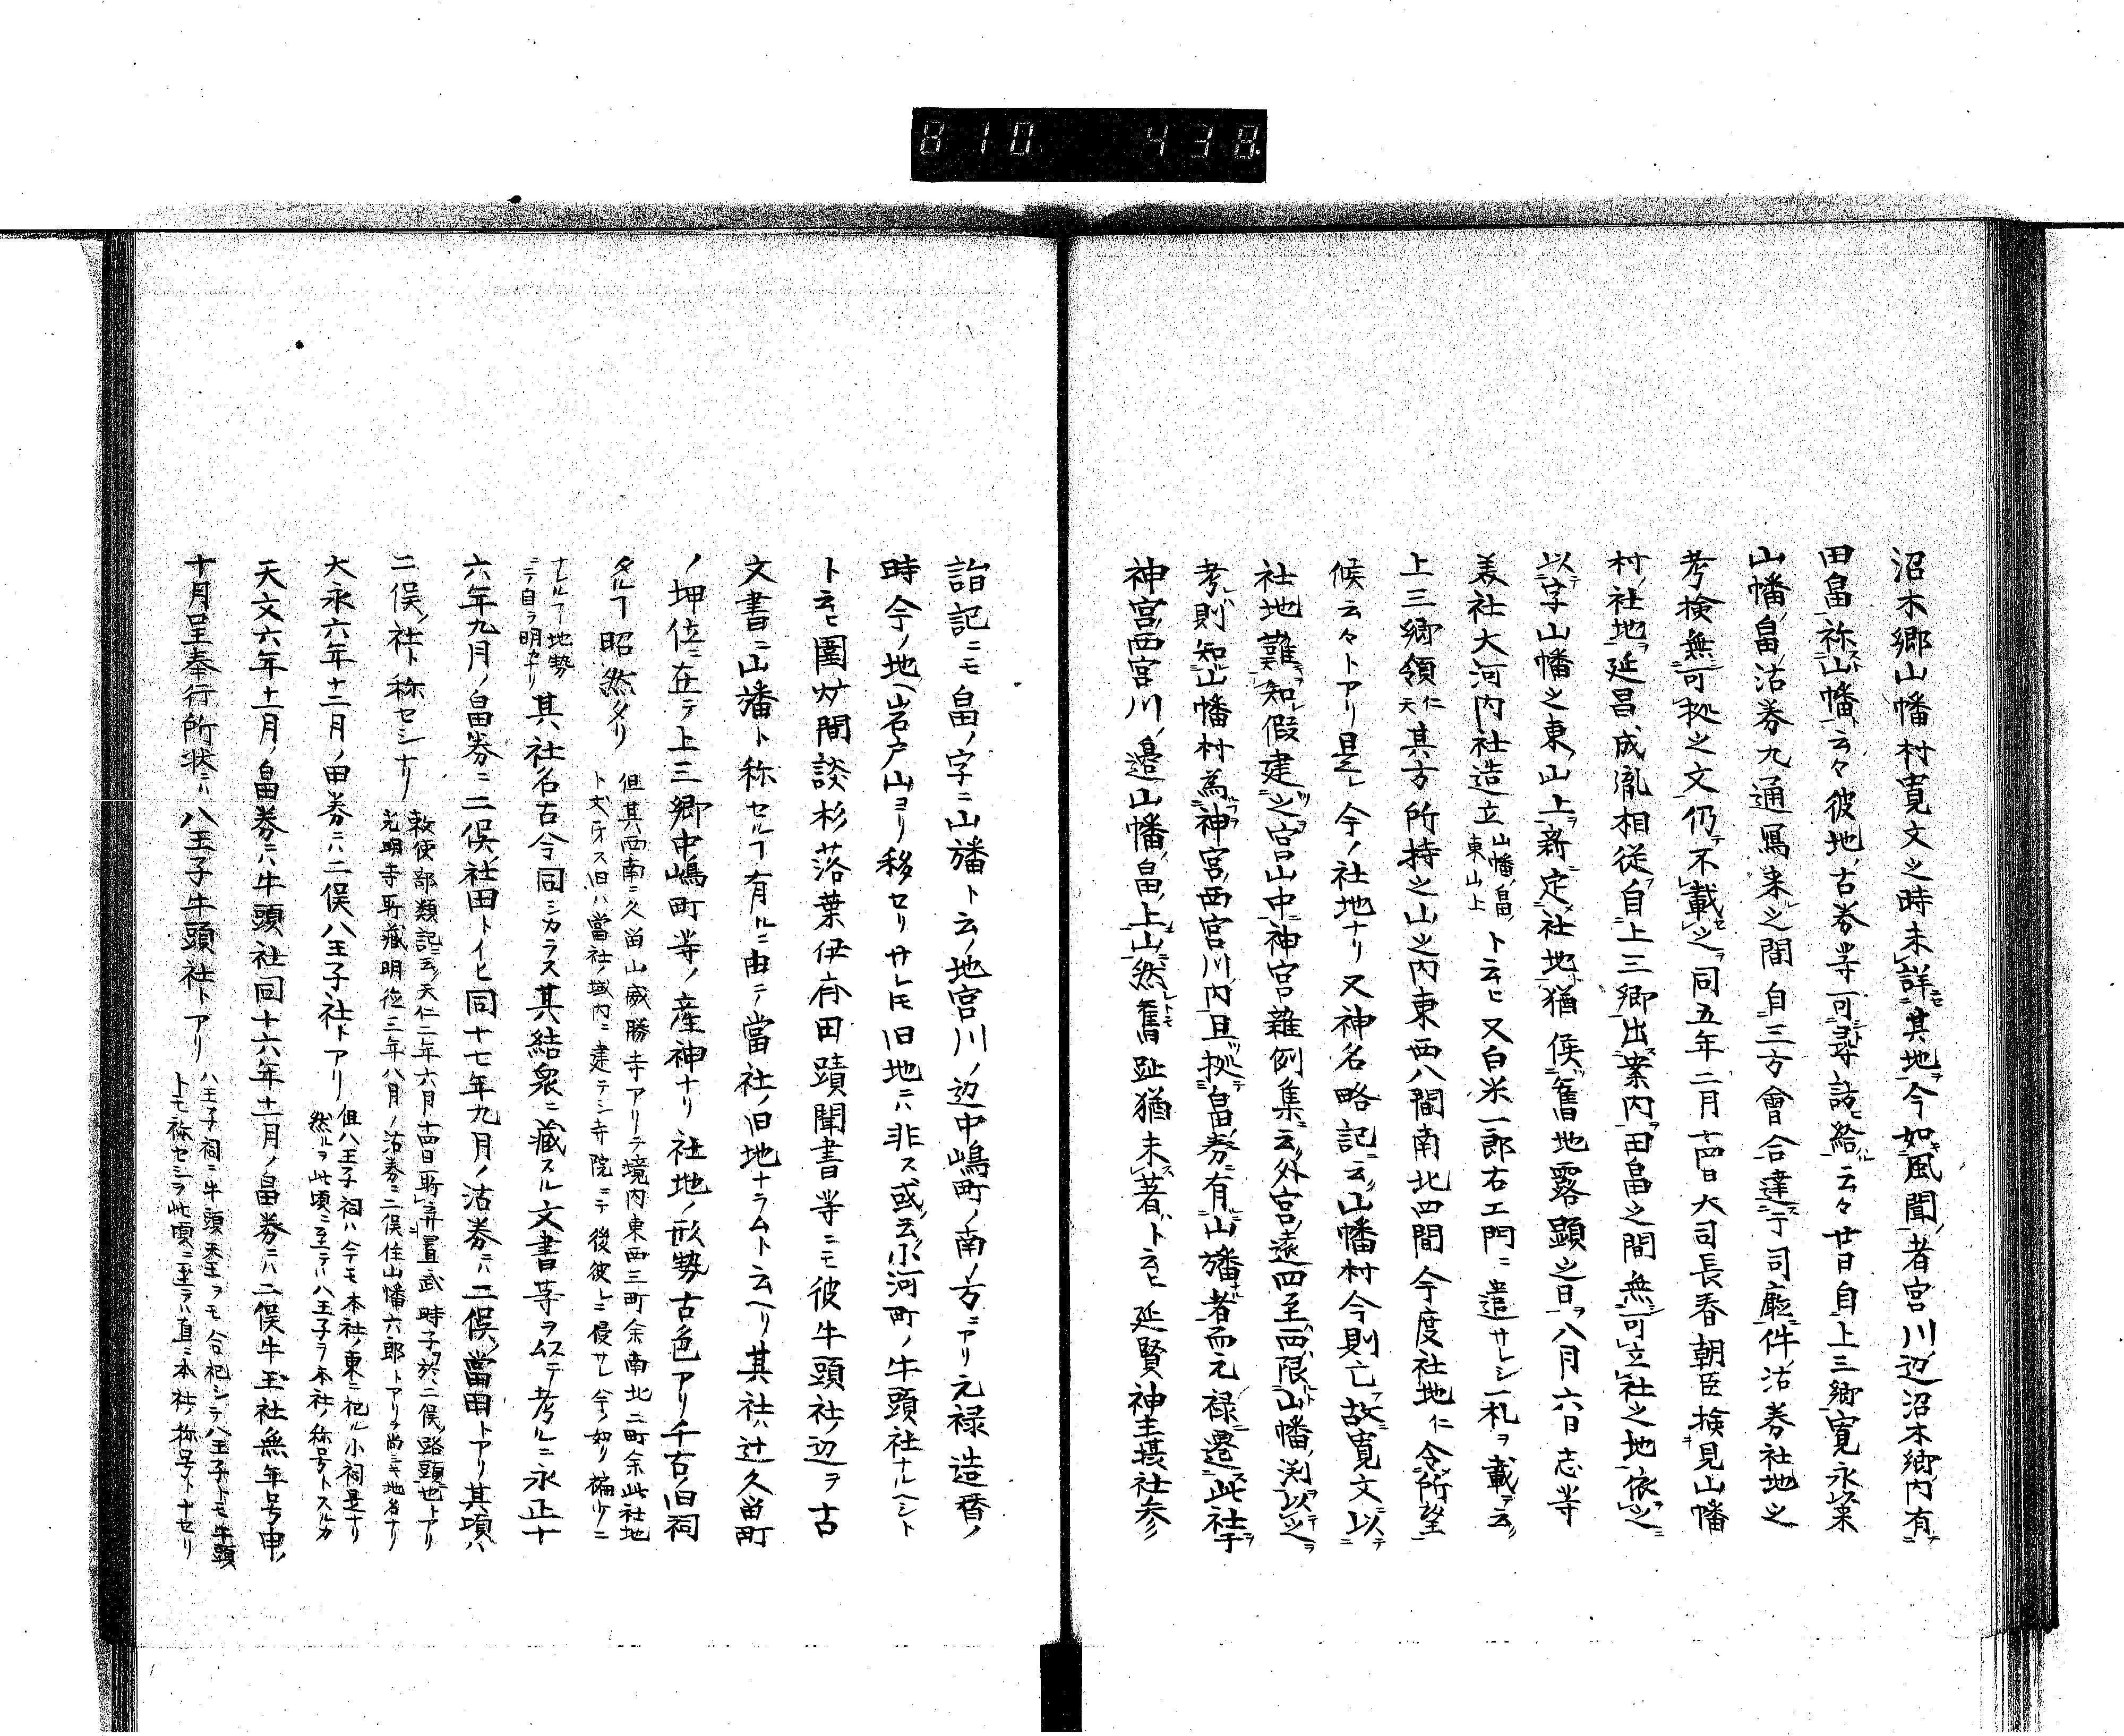 810 438
沼木郷山幡村寛文之時未詳其地今如風聞者宮川ノ辺沼木郷内有
田畠祢山幡云々彼地ノ古券等可尋詰給云々廿日自上三郷寛永以来
山幡ノ畠ノ沽券九通写来之間自三方會合達于司廳件ノ沽券社地之
考検無可拠之文仍不載之同五年二月十四日大司長春朝臣検見山幡
村ノ社地延昌成胤相従自上三郷出案内田畠之間無可立社之地依之
以字山幡之東ノ山上新定社地猶俟舊地露顕之日八月六日志等
美社大河内社造立山幡ノ畠ノ東山上ト云ヒ又白米一郎右エ門ニ遣サレシ一札ヲ載テ云
上三郷領仁天其方所持之山之内東西八間南北四間今度社地仁令所望
候云々トアリ是レ今ノ社地ナリ又神名略記云山幡村今則亡故寛文以
社地難知假建之宮山中神宮雜例集云外宮遠四至西限山幡渕以之
考則知山幡村為神宮西宮川内且拠畠券有山旛者而元禄遷此社于
神宮西宮川ノ邉山幡ノ畠ノ上山然舊趾猶未著トモ云ヒ延賢神主摂社参
詣記ニモ畠ノ字ニ山旛ト云ノ地宮川ノ辺中嶋町ノ南ノ方ニアリ元禄造替ノ
時今ノ地ヘ岩戸山ヨリ移セリサレトモ旧地ニハ非ス或云小河町ノ牛頭社ナルヘシト
ト云ヒ圍炉間談杉落葉伊府田蹟聞書等ニモ彼牛頭社ノ辺ヲ古
文書ニ山旛ト称セルヿ有ルニ由テ當社ノ旧地ナラムト云ヘリ其社ハ辻久留町
ノ坤位ニ在テ上三郷中嶋町等ノ産神ナリ社地ノ形勢古色アリ千古ノ旧祠
タルヿ昭然タリ但其西南ニ久留山威勝寺アリテ境内東西三町余南北二町余此社地
ト犬牙ス旧ハ當社ノ域内ニ建テシ寺院ニテ後彼レニ侵サレ今ノ如リ褊少ニ
ナレルヿ地勢
ニテ自ラ明カナリ其社名古今同シカラス其結衆ニ蔵スル文書等ヲ以テ考ルニ永正十
六年九月ノ畠券ニ二俣ノ社田トイヒ同十七年九月ノ沽券ニハ二俣ノ當田トアリ其頃ハ
二俣ノ社ト称セシナリ敕使部類記云天仁二年六月十四日所弃置武時子於二俣路頭地トアリ
光明寺所蔵明徳三年八月ノ沽券ニ二俣住山幡六郎トアリテ尚ニモ地名ナリ
大永六年十二月ノ田券ニハ二俣八王子社トアリ但八王子祠ハ今モ本社ノ東ニ祀ル小祠是ナリ
然ルヲ此頃ニ至テハ八王子ヲ本社ノ称号トスルカ
天文六年十一月ノ畠券ニハ牛頭社同十六年十一月ノ畠券ニハ二俣牛玉社無年号申ノ
十月呈奉行所状ニハ八王子牛頭社トアリ八王子祠ニ牛頭天王ヲモ合祀シテ八王子トモ牛頭
トモ称セシヲ此頃ニ至テハ直ニ本社ノ称号トナセリ